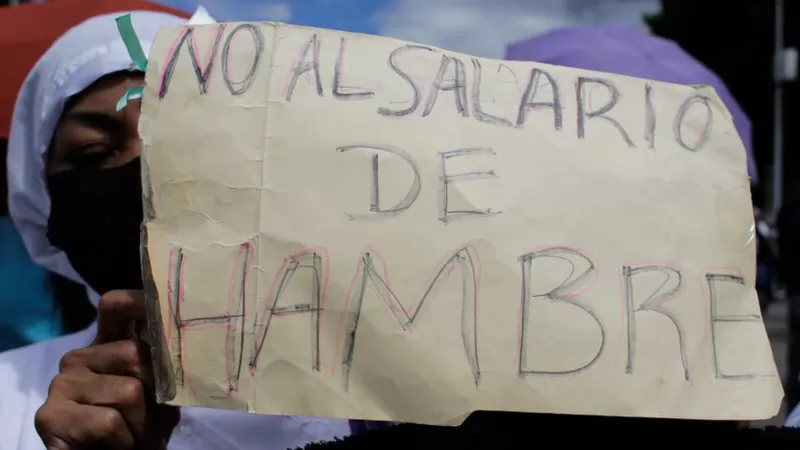 NO AL SALARIO
DE
HAMBRE